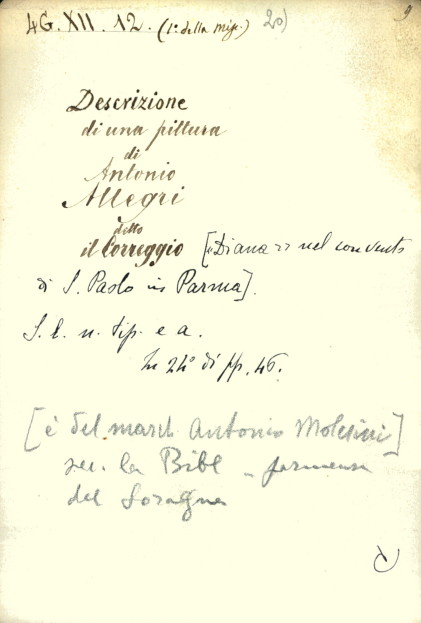 4G. XII. 12. (1ª della misc.) 20)
9
Descrizione
di una pittura
di
Antonio
Allegri
detto
il Correggio [«Diana» nel convento
di S. Paolo in Parma].
S. l. n. tip. e a.
In 24° di pp. 46.
[è del march. Antonio
sec. la Bibl. parmense
del Soragna